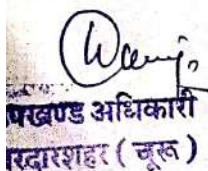 पखण्ड अधिकारी
रदारशहर ( चूरू )